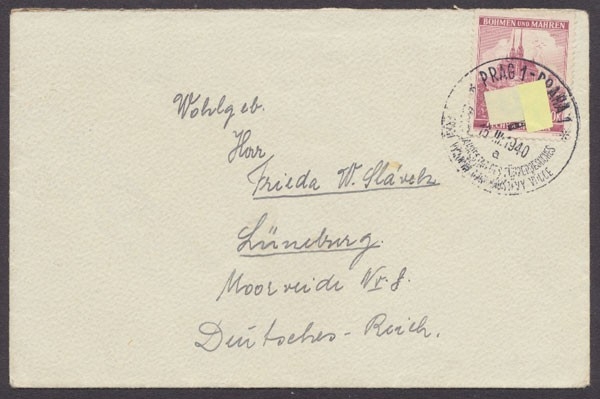 BÖHMEN UND MÄHREN
PRAG 1 - PRAHA 1
15.III.1940
a
Wohlgeb.
Herr
Frieda W. Slávek
Lüneburg.
Moorweide Nr. 8.
Deutsches-Reich.